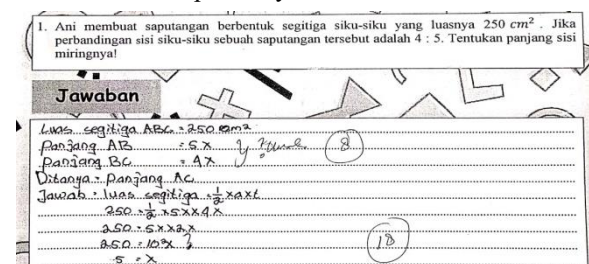 1. Ani membuat saputangan berbentuk segitiga siku-siku yang luasnya 250 cm². Jika
perbandingan sisi siku-siku sebuah saputangan tersebut adalah 4 : 5. Tentukan panjang sisi
miringnya!
Jawaban
Luas segitiga ABC = 250 cm2
Panjang AB = 5x
Panjang BC = 4x
8
Ditanya = Panjang AC
Jawab = luas segitiga = ½ x a x t
250 = ½ x 5x x 4x
250 = 5x x 2x
250 = 10x
18
5 = x